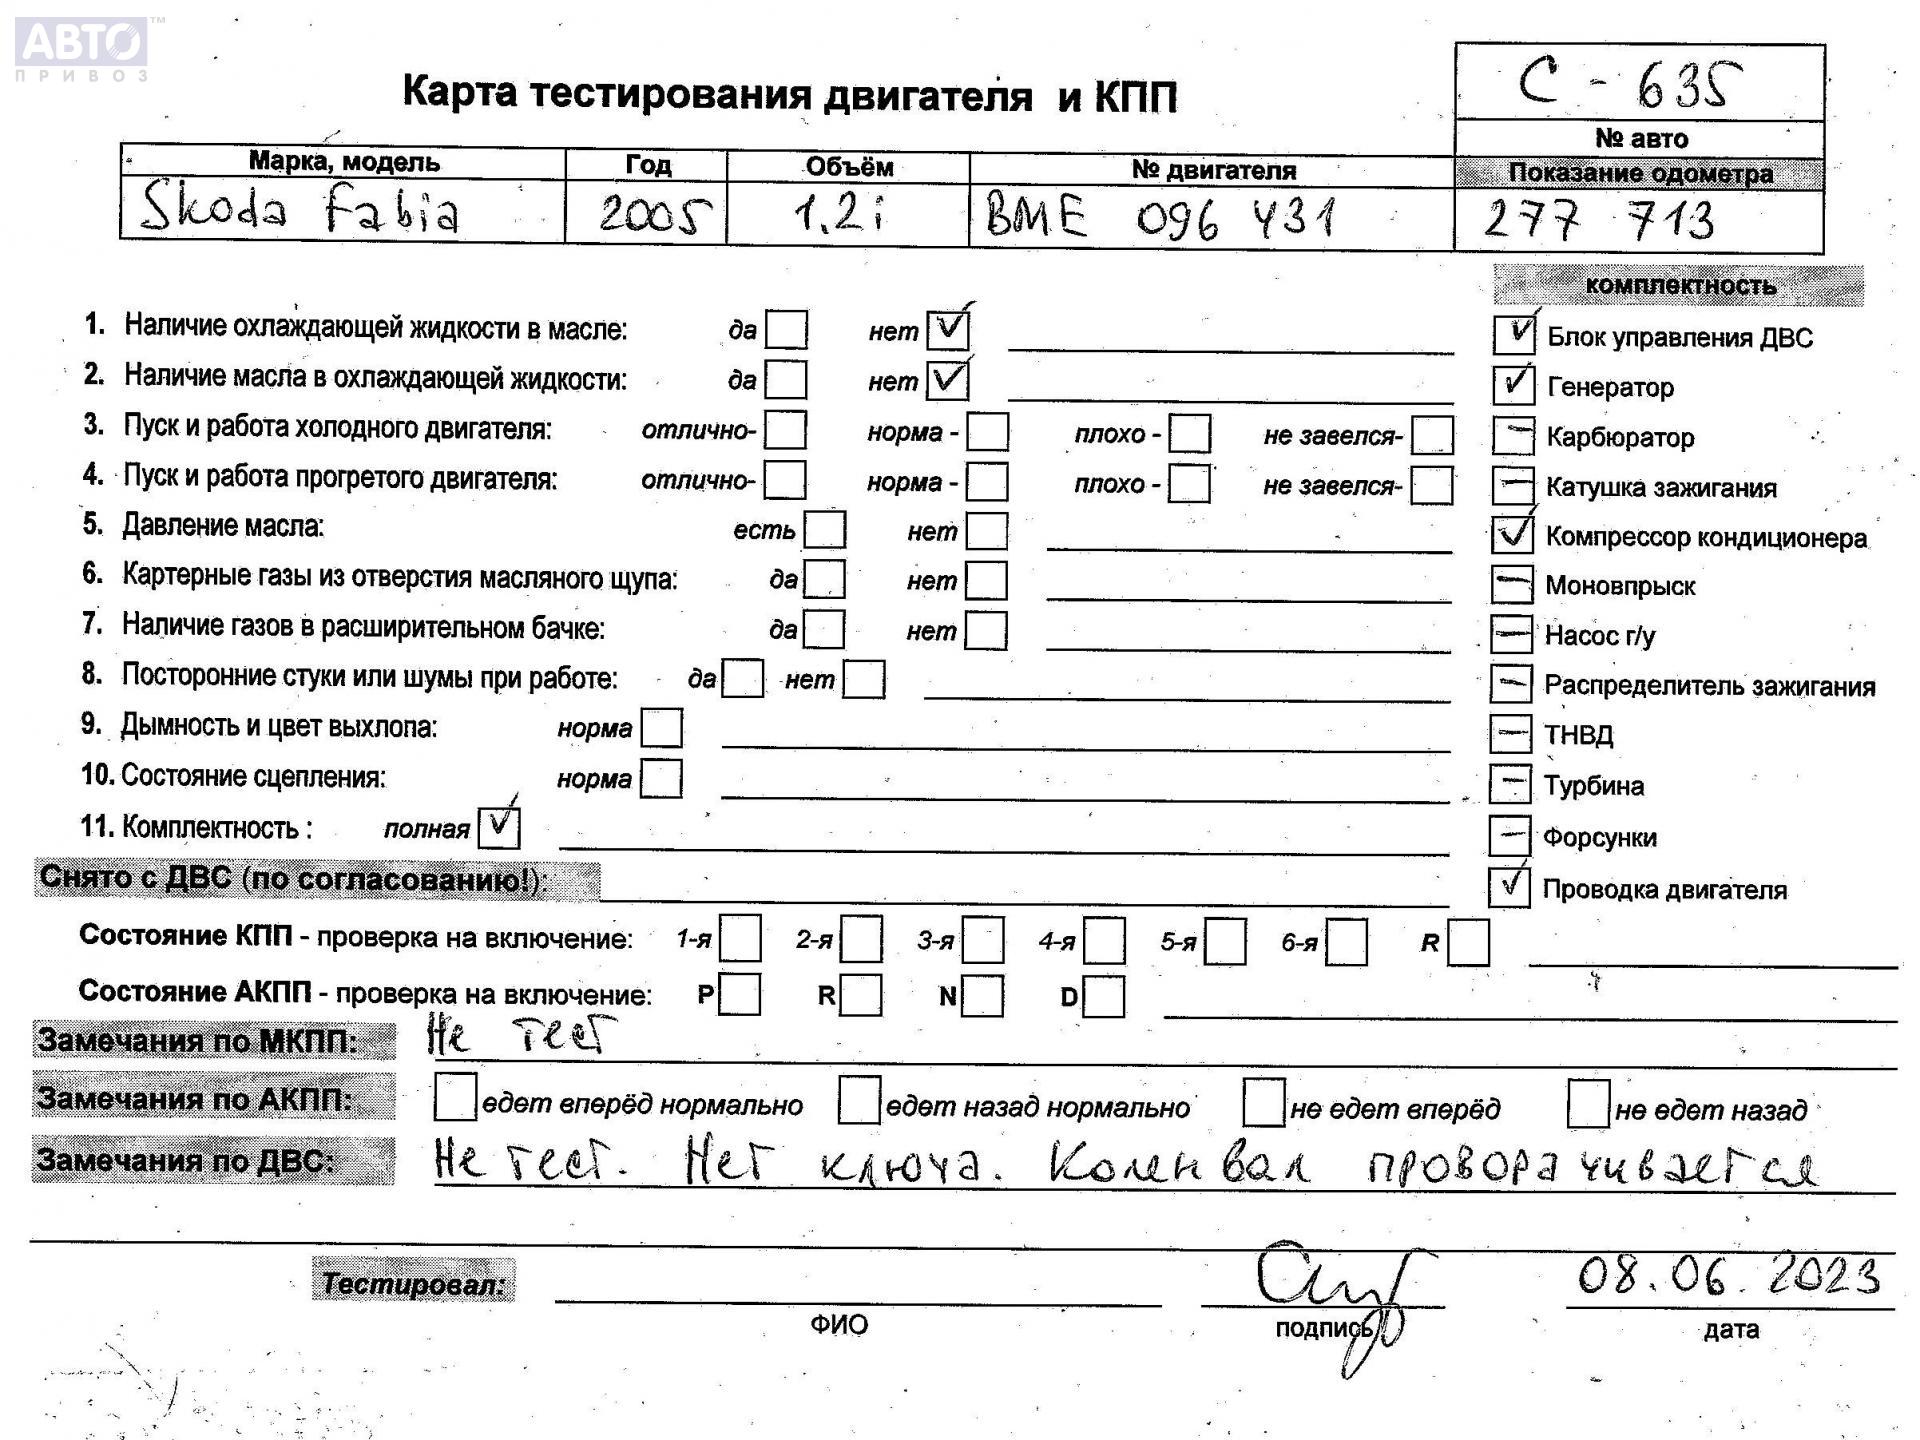 АВТО ™
ПРИВОЗ
С - 635
Карта тестирования двигателя и КПП
№ авто
Марка, модель Год Объём № двигателя Показание одометра
Skoda Fabia 2005 1.2i BME 096 431 277 713
комплектность
1. Наличие охлаждающей жидкости в масле: да нет ✓ ✓ Блок управления ДВС
2. Наличие масла в охлаждающей жидкости: да нет ✓ ✓ Генератор
3. Пуск и работа холодного двигателя: отлично- норма - плохо - не завелся- — Карбюратор
4. Пуск и работа прогретого двигателя: отлично- норма - плохо - не завелся- — Катушка зажигания
5. Давление масла: есть нет ✓ Компрессор кондиционера
6. Картерные газы из отверстия масляного щупа: да нет — Моновпрыск
7. Наличие газов в расширительном бачке: да нет — Насос г/у
8. Посторонние стуки или шумы при работе: да нет — Распределитель зажигания
9. Дымность и цвет выхлопа: норма — ТНВД
10. Состояние сцепления: норма — Турбина
11. Комплектность : полная ✓ — Форсунки
Снято с ДВС (по согласованию!): ✓ Проводка двигателя
Состояние КПП - проверка на включение: 1-я 2-я 3-я 4-я 5-я 6-я R
Состояние АКПП - проверка на включение: P R N D
Замечания по МКПП: Не тест
Замечания по АКПП: едет вперёд нормально едет назад нормально не едет вперёд не едет назад
Замечания по ДВС: Не тест. Нет ключа. Коленвал проворачивается
Тестировал: 08.06.2023
ФИО подпись дата